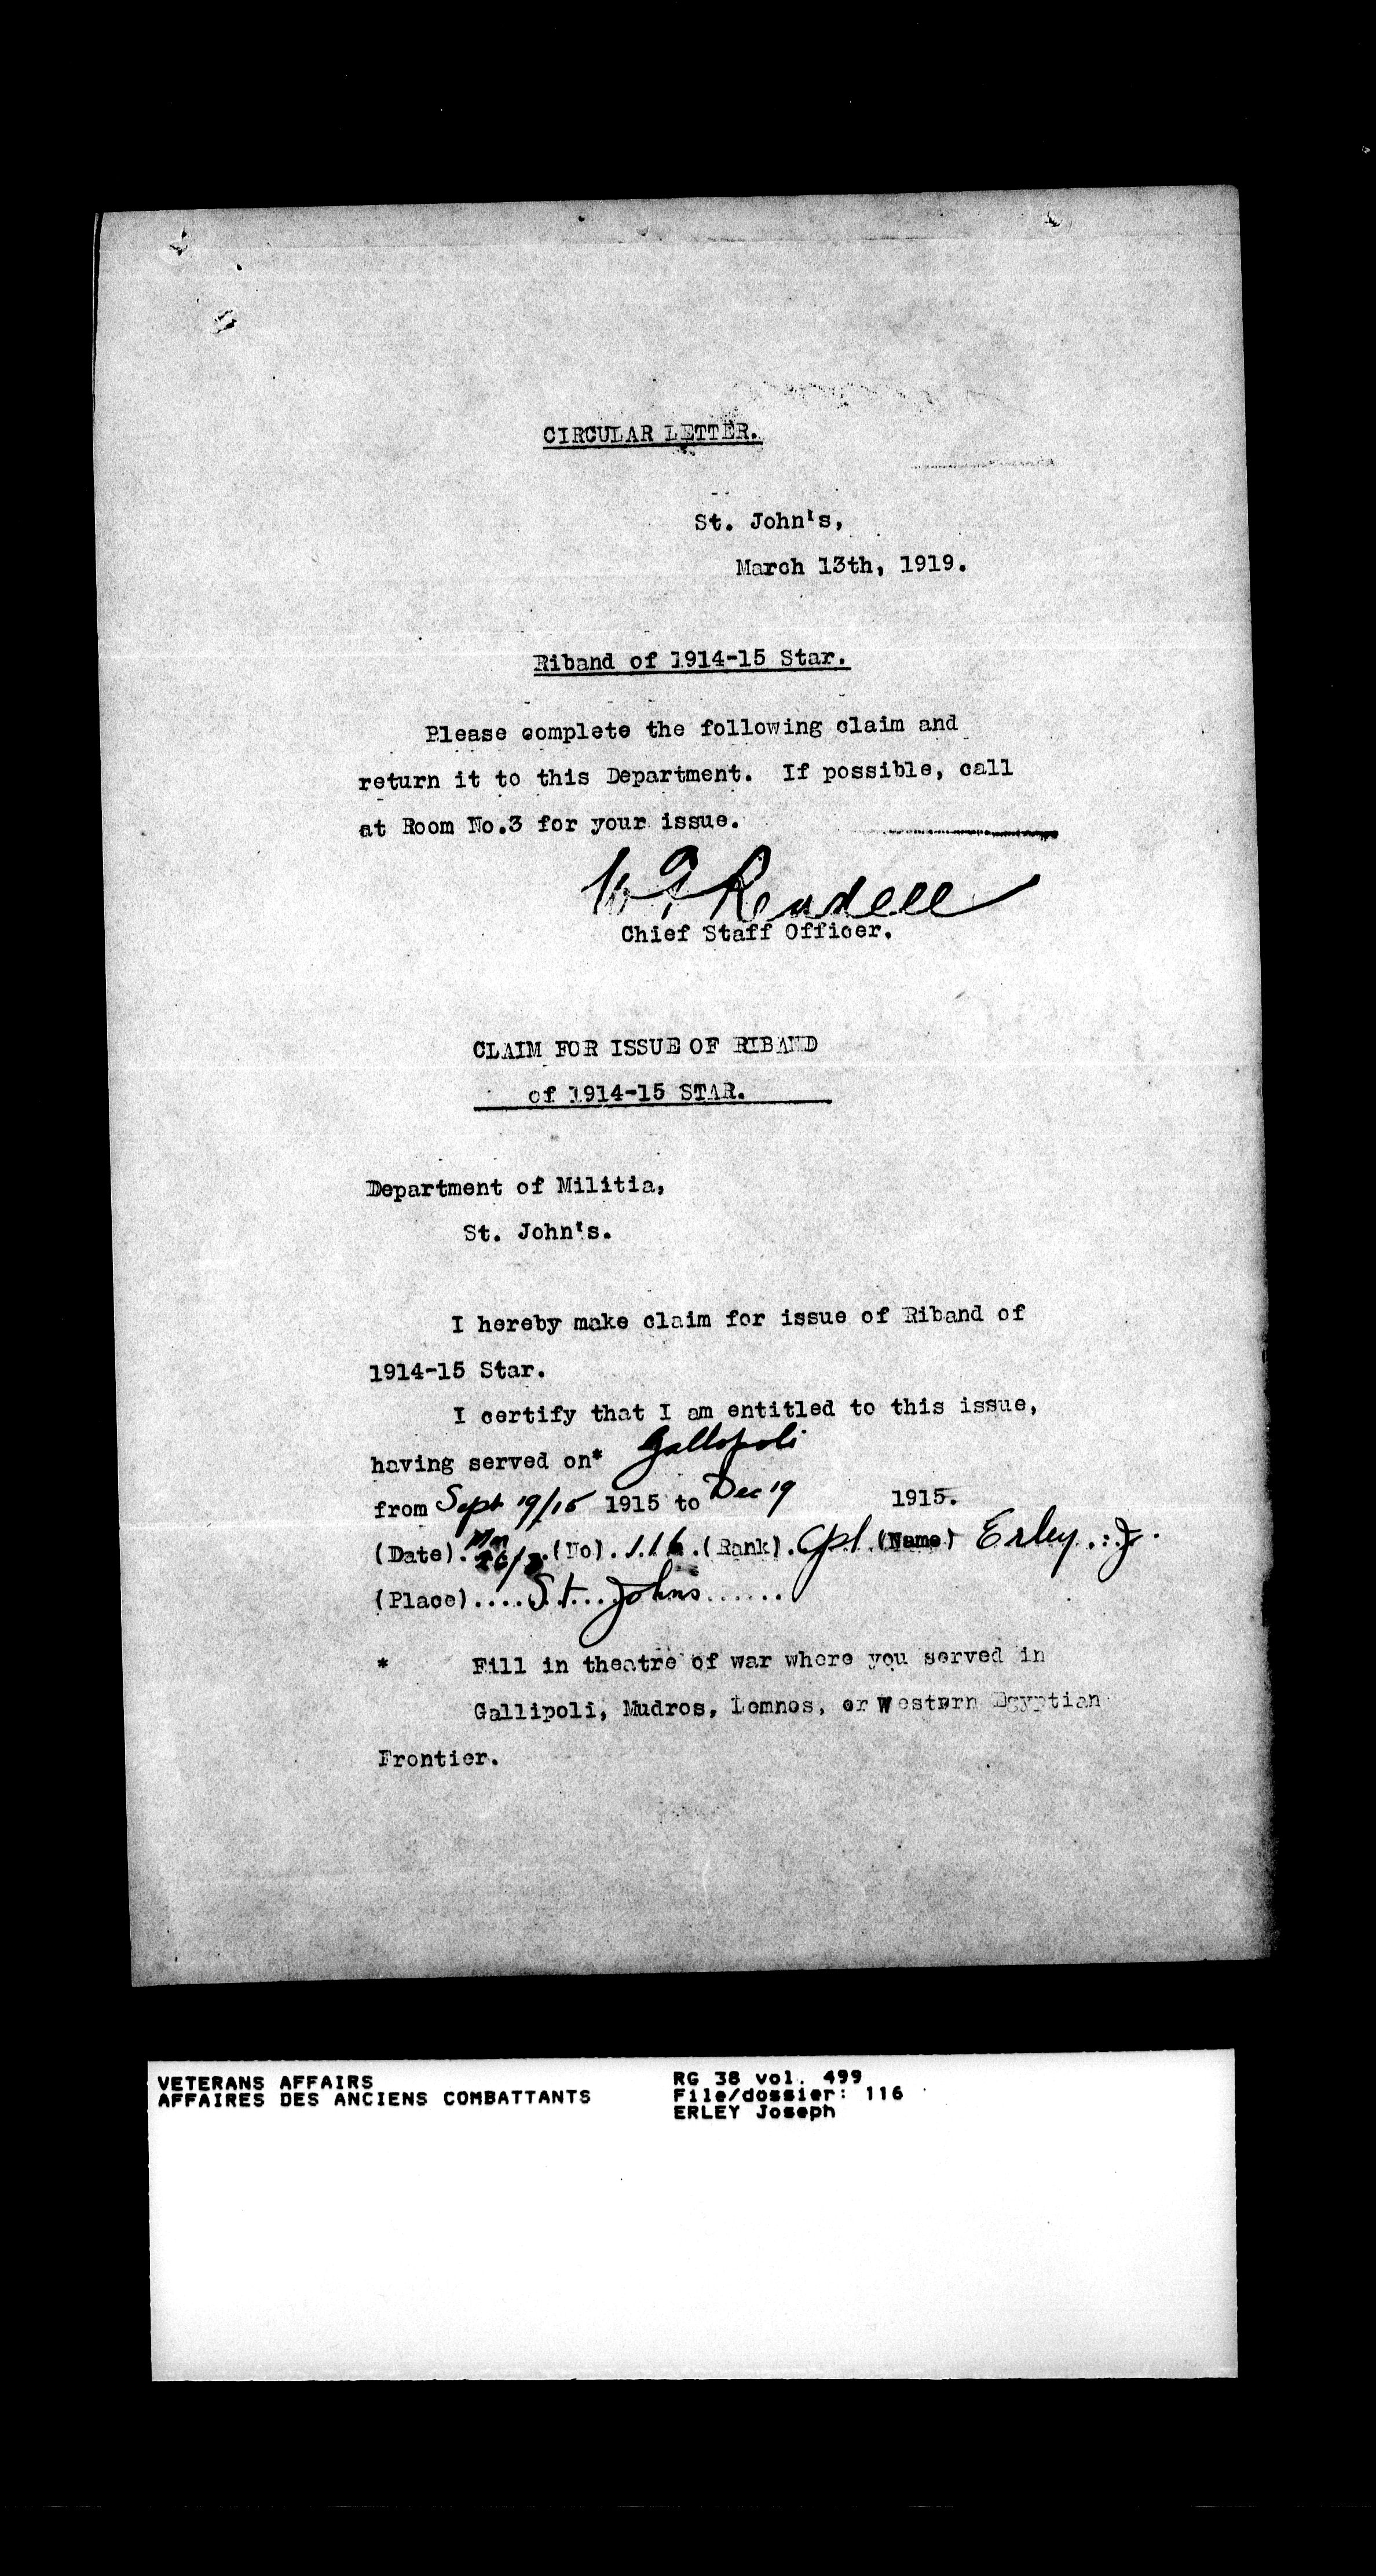 CIRCULAR LETTER.
St. John's,
March 13th, 1919.
Riband of 1914-15 Star.
Please complete the following claim and
return it to this Department. If possible, call
at Room No.3 for your issue.
W F Rendell
Chief Staff Officer.
CLAIM FOR ISSUE OF RIBAND
of 1914-15 STAR.
Department of Militia,
St. John's.
I hereby make claim for issue of Riband of
1914-15 Star.
I certify that I am entitled to this issue,
having served on* Gallopoli
from Sept 19/15 1915 to Dec 19 1915.
(Date). 26/3.(No).116.(Rank).Cpl.(Name) Erley..J.
(Place)....St...Johns......
* Fill in theatre of war where you served in
Gallipoli, Mudros, Lemnos, or Western Egyptian
Frontier.
VETERANS AFFAIRS
AFFAIRES DES ANCIENS COMBATTANTS
RG 38 vol. 499
File/dossier: 116
ERLEY Joseph